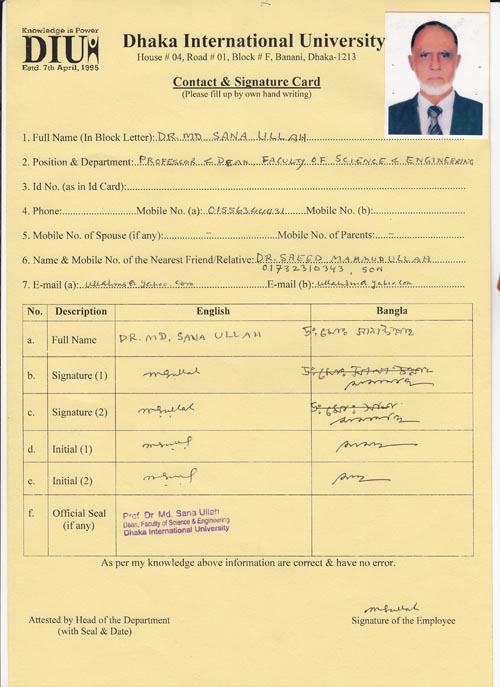 Knowledge is Power
DIU
Estd. 7th April, 1995
Dhaka International University
House # 04, Road # 01, Block # F, Banani, Dhaka-1213
Contact & Signature Card
(Please fill up by own hand writing)
1. Full Name (In Block Letter): DR. MD SANA ULLAH
2. Position & Department: PROFESSOR & DEAN, FACULTY OF SCIENCE & ENGINEERING
3. Id No. (as in Id Card):
4. Phone: Mobile No. (a): Mobile No. (b):
5. Mobile No. of Spouse (if any): - Mobile No. of Parents: -
6. Name & Mobile No. of the Nearest Friend/Relative: DR. SAEED MAHMUDULLAH
01732310343, SON
7. E-mail (a): E-mail (b):
No. Description English Bangla
a. Full Name DR. MD. SANA ULLAH
b. Signature (1)
c. Signature (2)
d. Initial (1)
e. Initial (2)
f. Official Seal (if any)
Prof. Dr Md. Sana Ullah
Dean, Faculty of Science & Engineering
Dhaka International University
As per my knowledge above information are correct & have no error.
Attested by Head of the Department
(with Seal & Date)
Signature of the Employee